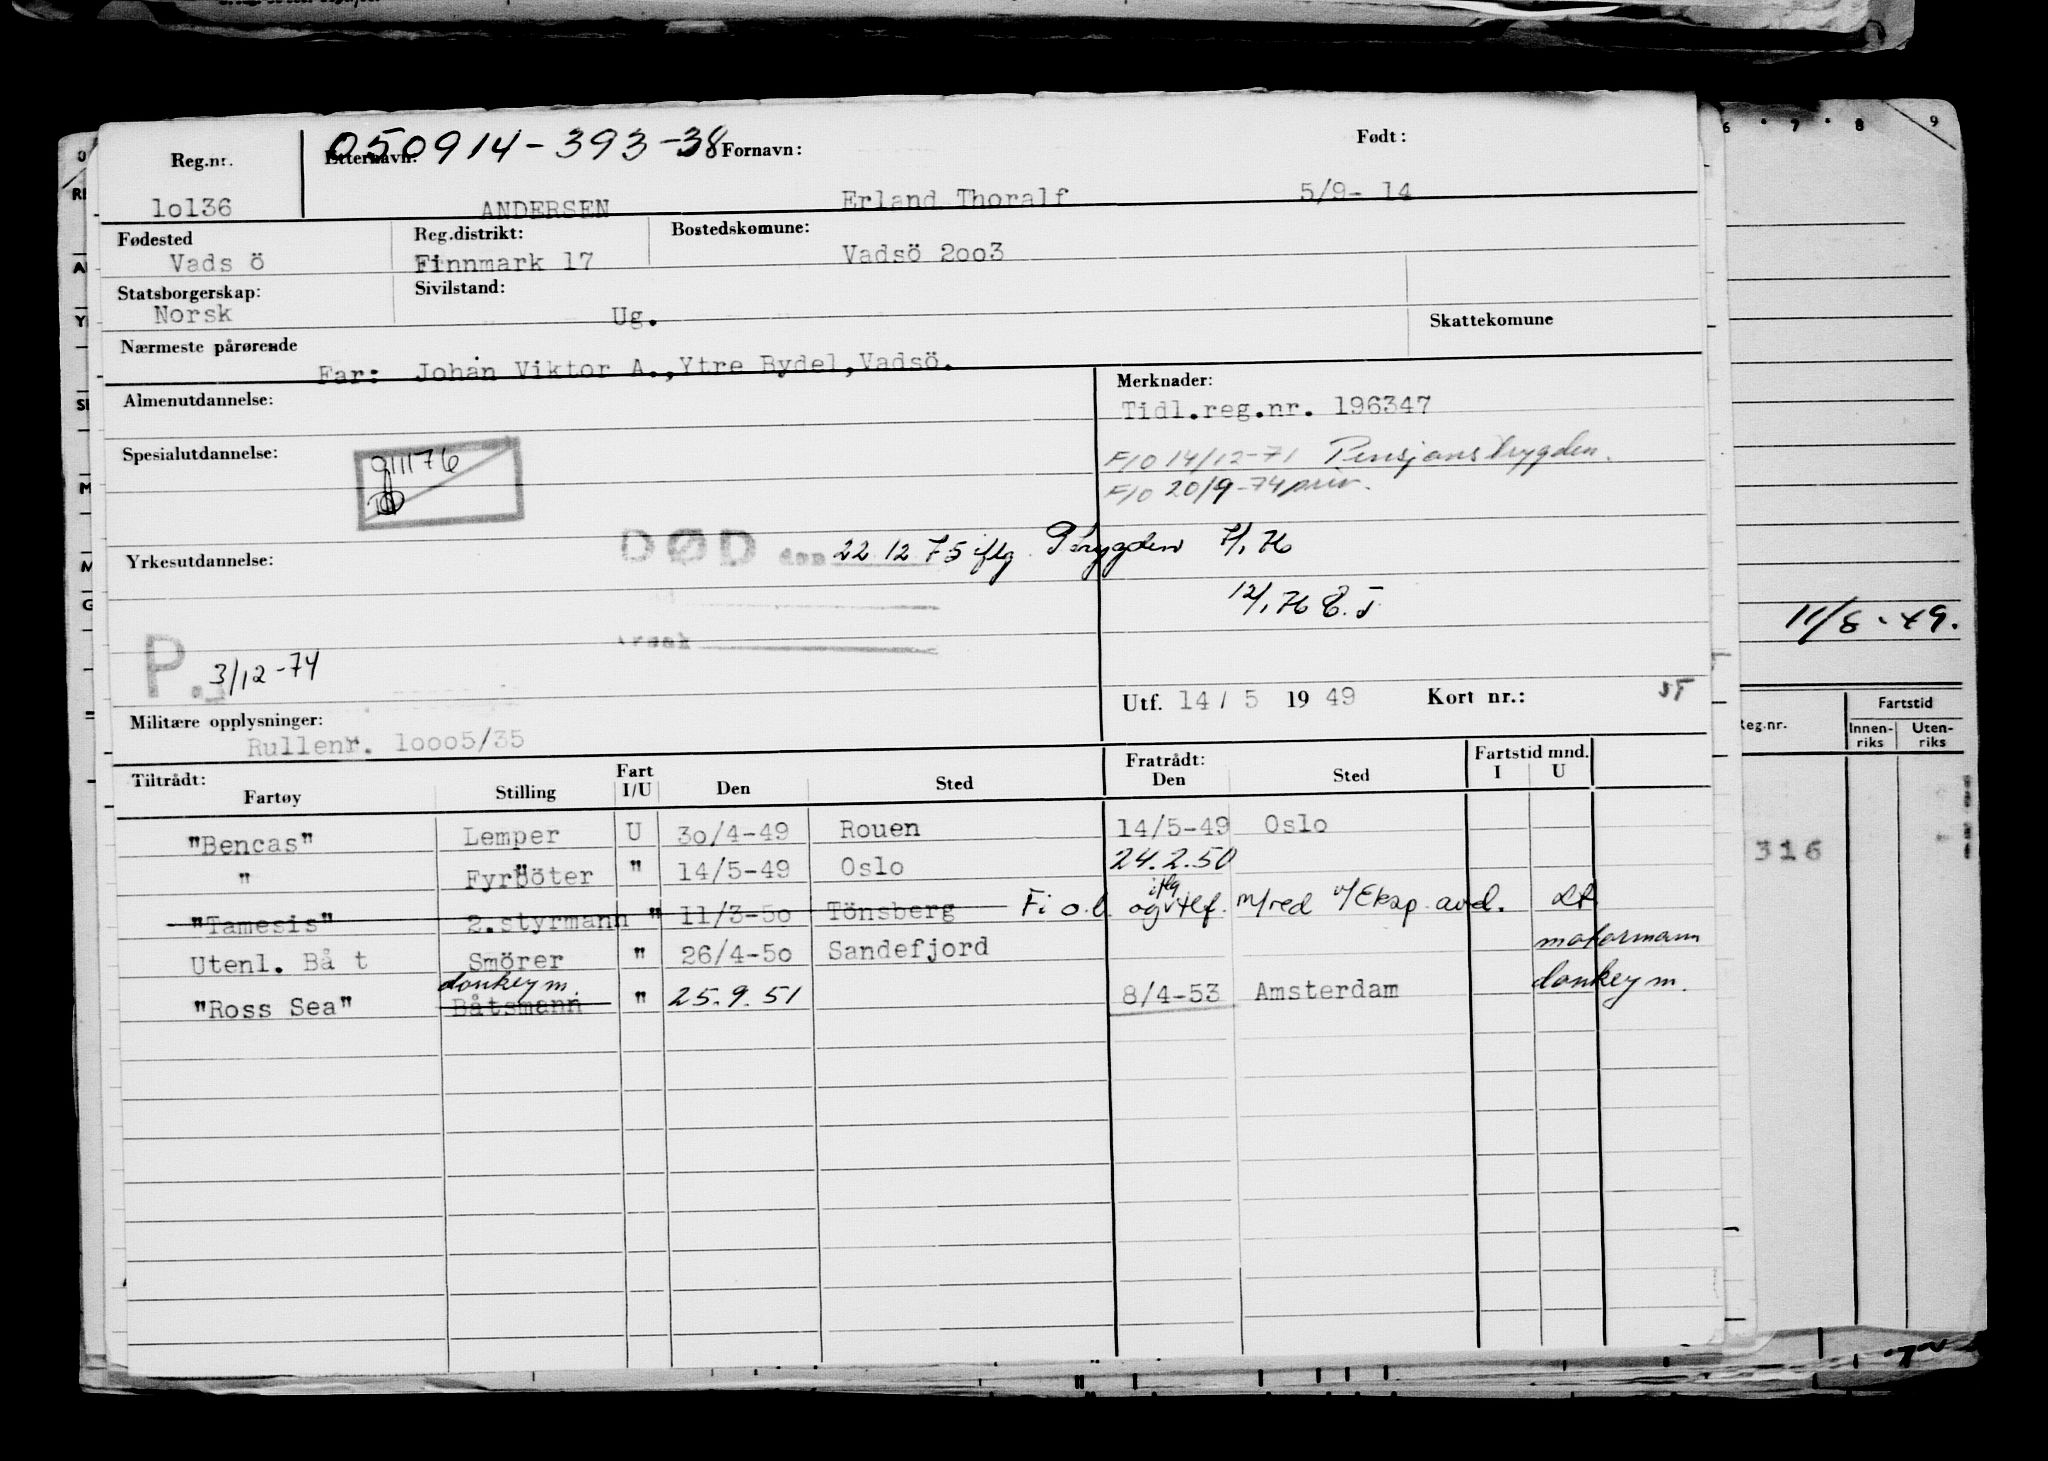 050914-393-38
Reg.nr. Etternavn: Fornavn: Født:
lol36 ANDERSEN Erland Thoralf 5/9- 14
Fødested Reg.distrikt: Bostedskomune:
Vads ö Finnmark 17 Vadsö 2oo3
Statsborgerskap: Sivilstand:
Norsk Ug. Skattekomune
Nærmeste pårørende
Far: Johan Viktor A.,Ytre Bydel,Vadsö.
Almenutdannelse: Merknader:
Tidl.reg.nr. 196347
Spesialutdannelse: F/O 14/12-71 Pensjonstrygden.
911176 F/O 20/9-74 priv.
DØD den 22 12 75 iflg. Ptrygden 7/1 76
Yrkesutdannelse:
12/1 76 E.J.
Årsak
P. 3/12-74
Utf. 14 / 5 19 49 Kort nr.:
Militære opplysninger:
Rullenr. looo5/35
Tiltrådt: Fart Fratrådt: Fartstid mnd.
Fartøy Stilling I/U Den Sted Den Sted I U
"Bencas" Lemper U 3o/4-49 Rouen 14/5-49 Oslo
" Fyrböter " 14/5-49 Oslo 24.2.50
"Tamesis" 2.styrmann " 11/3-5o Tönsberg Fi o.l. iflg og tlf. m/red v/Eksp. avd.
Utenl. Bå t Smörer " 26/4-5o Sandefjord motormann
"Ross Sea" Båtsmann donkeym. " 25.9.51 8/4-53 Amsterdam donkeym.
6 7 8 9
11/8.49.
Reg.nr. Fartstid
Innen-riks Uten-riks
316